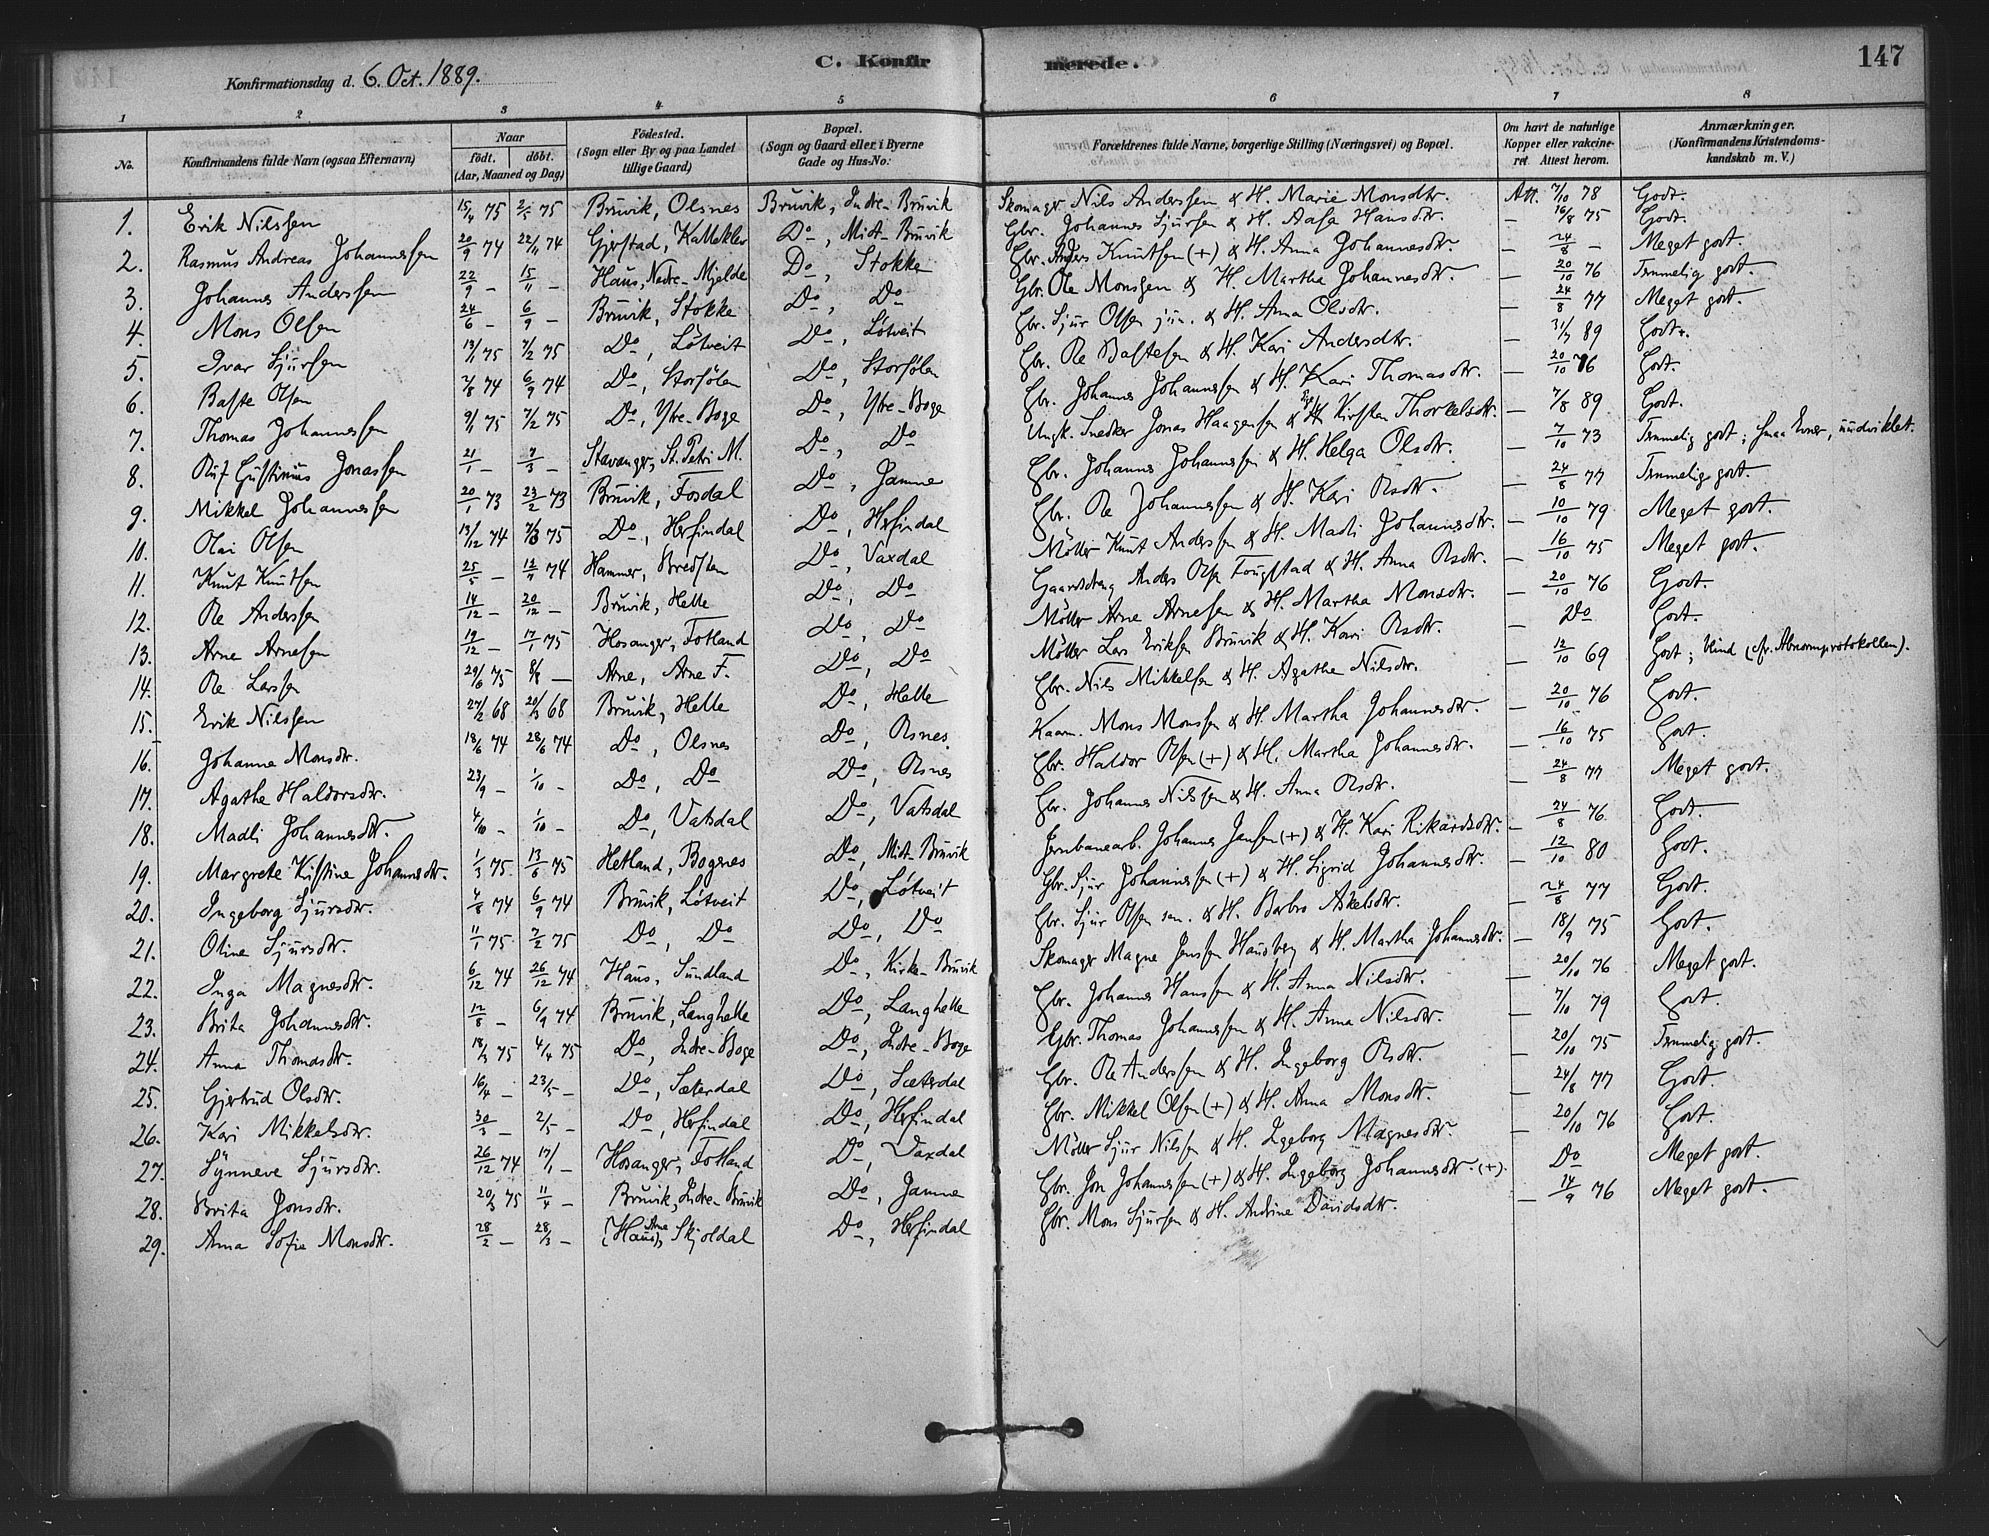 C. Konfirmerede.
147
Konfirmationsdag d. 6. Oct. 1889.
1 2 3 4 5 6 7 8
No. Konfirmandens fulde Navn (ogsaa Efternavn) Naar födt. döbt. (Aar, Maaned og Dag) Födested. (Sogn eller By og paa Landet tillige Gaard) Bopæl. (Sogn og Gaard eller i Byerne Gade og Hus-No: Forældrenes fulde Navne, borgerlige Stilling (Næringsvei) og Bopæl. Om havt de naturlige Kopper eller vakcineret Attest herom. Anmærkninger. (Konfirmandens Kristendomskundskab m. V.)
1. Erik Nilssen 15/4 75 2/5 75 Bruvik, Olsnes Bruvik, Indre-Bruvik Skomager Nils Anderssen & H. Marie Monsdtr. Att. 7/10 78 Godt.
2. Rasmus Andreas Johannessen 20/9 74 22/11 74 Gjerstad, Do, Midt-Bruvik Gbr. Johannes Sjursen & H. Aasa Hansdtr. - 16/8 75 Godt.
3. Johannes Anderssen 22/9 - 15/11 - Haus, Nedre-Mjelde Do, Stokke Gbr. Anders Knutsen (+) & H. Anna Johannesdtr. - 24/8 - Meget godt.
4. Mons Olsen 24/6 - 6/9 - Bruvik, Stokke Do, Do Gbr. Ole Monssen & H. Martha Johannesdtr. - 20/10 76 Temmelig godt.
5. Ivar Sjursen 13/1 75 7/2 75 Do, Løtveit Do, Løtveit Gbr. Sjur Olsen jun. & H. Anna Olsdtr. - 24/8 77 Meget godt.
6. Baste Olsen 7/8 74 6/9 74 Do, Storsølen Do, Storsølen Gbr. Ole Bastesen & H. Kari Andersdtr. - 31/7 89 Godt.
7. Thomas Johannessen 9/1 75 7/2 75 Do, Ytre-Boge Do, Ytre-Boge Gbr. Johannes Johannessen & H. Kari Thomasdtr. - 20/10 76 Godt.
8. Jonassen 21/1 - 7/3 - Stavanger, St. Petri M. Do, Do Ungk. Snedker Jonas Haagensen & Kirsten Thorkelsdtr. - 7/8 89 Godt.
9. Mikkel Johannessen 20/1 73 23/2 73 Bruvik, Fosdal Do, Jamne Gbr. Johannes Johannessen & H. Helga Olsdtr. - 7/10 73 Temmelig godt; smaa Evner, uudviklet.
10. Olai Olsen 13/12 74 7/3 75 Do, Herfindal Do, Herfindal Gbr. Ole Johannessen & H. Kari Olsdtr. - 24/8 77 Temmelig godt.
11. Knut Knutsen 25/5 - 12/7 74 Hammer, Bredsten Do, Vaxdal Möller Knut Anderssen & H. Madli Johannesdtr. - 10/10 79 Meget godt.
12. Ole Anderssen 14/12 - 20/12 - Bruvik, Helle Do, Do Gaardsdreng Anders Olsen & H. Anna Olsdtr. - 16/10 75 Meget godt.
13. Arne Arnesen 19/12 - 17/1 75 Hosanger, Fotland Do, Do Möller Arne Arnesen & H. Martha Monsdtr. - 20/10 76 Godt.
14. Ole Larssen 29/6 75 8/8 - Arne, Arne F. Do, Do Möller Lars Eriksen Bruvik & H. Kari Olsdtr. - Do Godt.
15. Erik Nilssen 27/2 68 20/3 68 Bruvik, Helle Do, Helle Gbr. Nils Mikkelsen & H. Agathe Nilsdtr. - 12/10 69 Godt; blind (cfr. Abnormprotokollen).
16. Johanna Monsdtr. 18/6 74 28/6 74 Do, Olsnes Do, Olsnes. Kaarm. Mons Monssen & H. Martha Johannesdtr. - 20/10 76 Godt.
17. Agathe Haldorsdtr. 23/9 - 1/10 - Do, Do Do, Olsnes Gbr. Haldor Olsen (+) & H. Martha Johannesdtr. - 16/10 75 Godt.
18. Madli Johannesdtr. 4/10 - 1/10 - Do, Vatsdal Do, Vatsdal Gbr. Johannes Nilssen & H. Anna Olsdtr. - 24/8 77 Meget godt.
19. Margrete Kistine Johannesdtr. 1/3 75 13/6 75 Hetland, Bogsnes Do, Midt-Bruvik Jernbanearb. Johannes Jansen (+) & H. Kari Rikardsdtr. - 24/8 76 Godt.
20. Ingeborg Sjursdtr. 4/8 74 6/9 74 Bruvik, Løtveit Do, Løtveit Gbr. Sjur Johannessen (+) & H. Sigrid Johannesdtr. - 12/10 80 Godt.
21. Oline Sjursdtr. 11/1 75 7/2 75 Do, Do Do, Do Gbr. Sjur Olsen sen. & H. Barbro Askelsdtr. - 24/8 77 Godt.
22. Inga Magnesdtr. 6/12 74 26/12 74 Haus, Sundland Do, Kirke-Bruvik Skomager Magne Jenssen Hausberg & H. Martha Johannesdtr. - 18/9 75 Godt.
23. Brita Johannesdtr. 12/8 - 6/9 74 Bruvik, Langhelle Do, Langhelle Gbr. Johannes Hanssen & H. Anna Nilsdtr. - 20/10 76 Meget godt.
24. Anna Thomasdtr. 18/3 75 4/4 75 Do, Indre-Boge Do, Indre-Boge Gbr. Thomas Johannessen & H. Anna Nilsdtr. - 7/10 79 Godt.
25. Gjertrud Olsdtr. 16/4 - 23/5 - Do, Sæterdal Do, Sæterdal Gbr. Ole Anderssen & H. Ingeborg Olsdtr. - 20/10 75 Temmelig godt.
26. Kari Mikkelsdtr. 30/3 - 2/5 - Do, Herfindal Do, Herfindal Gbr. Mikkel Olsen (+) & H. Anna Monsdtr. - 24/8 77 Godt.
27. Synneve Sjursdtr. 26/12 74 17/1 - Hosanger, Fotland Do, Vaxdal Möller Sjur Nilssen & H. Ingeborg Magnesdtr. - 20/10 76 Godt.
28. Brita Jonsdtr. 20/3 75 11/4 - Bruvik, Indre-Bruvik Do, Jamne Gbr. Jon Johannessen (+) & H. Ingeborg Johannesdtr. (+). Do Meget godt.
29. Anna Sofie Monsdtr. 28/2 - 28/3 - (Haus), Arne Skjoldal Do, Herfindal Gbr. Mons Sjursen & H. Andrine Davidsdtr. - 14/9 76 Meget godt.